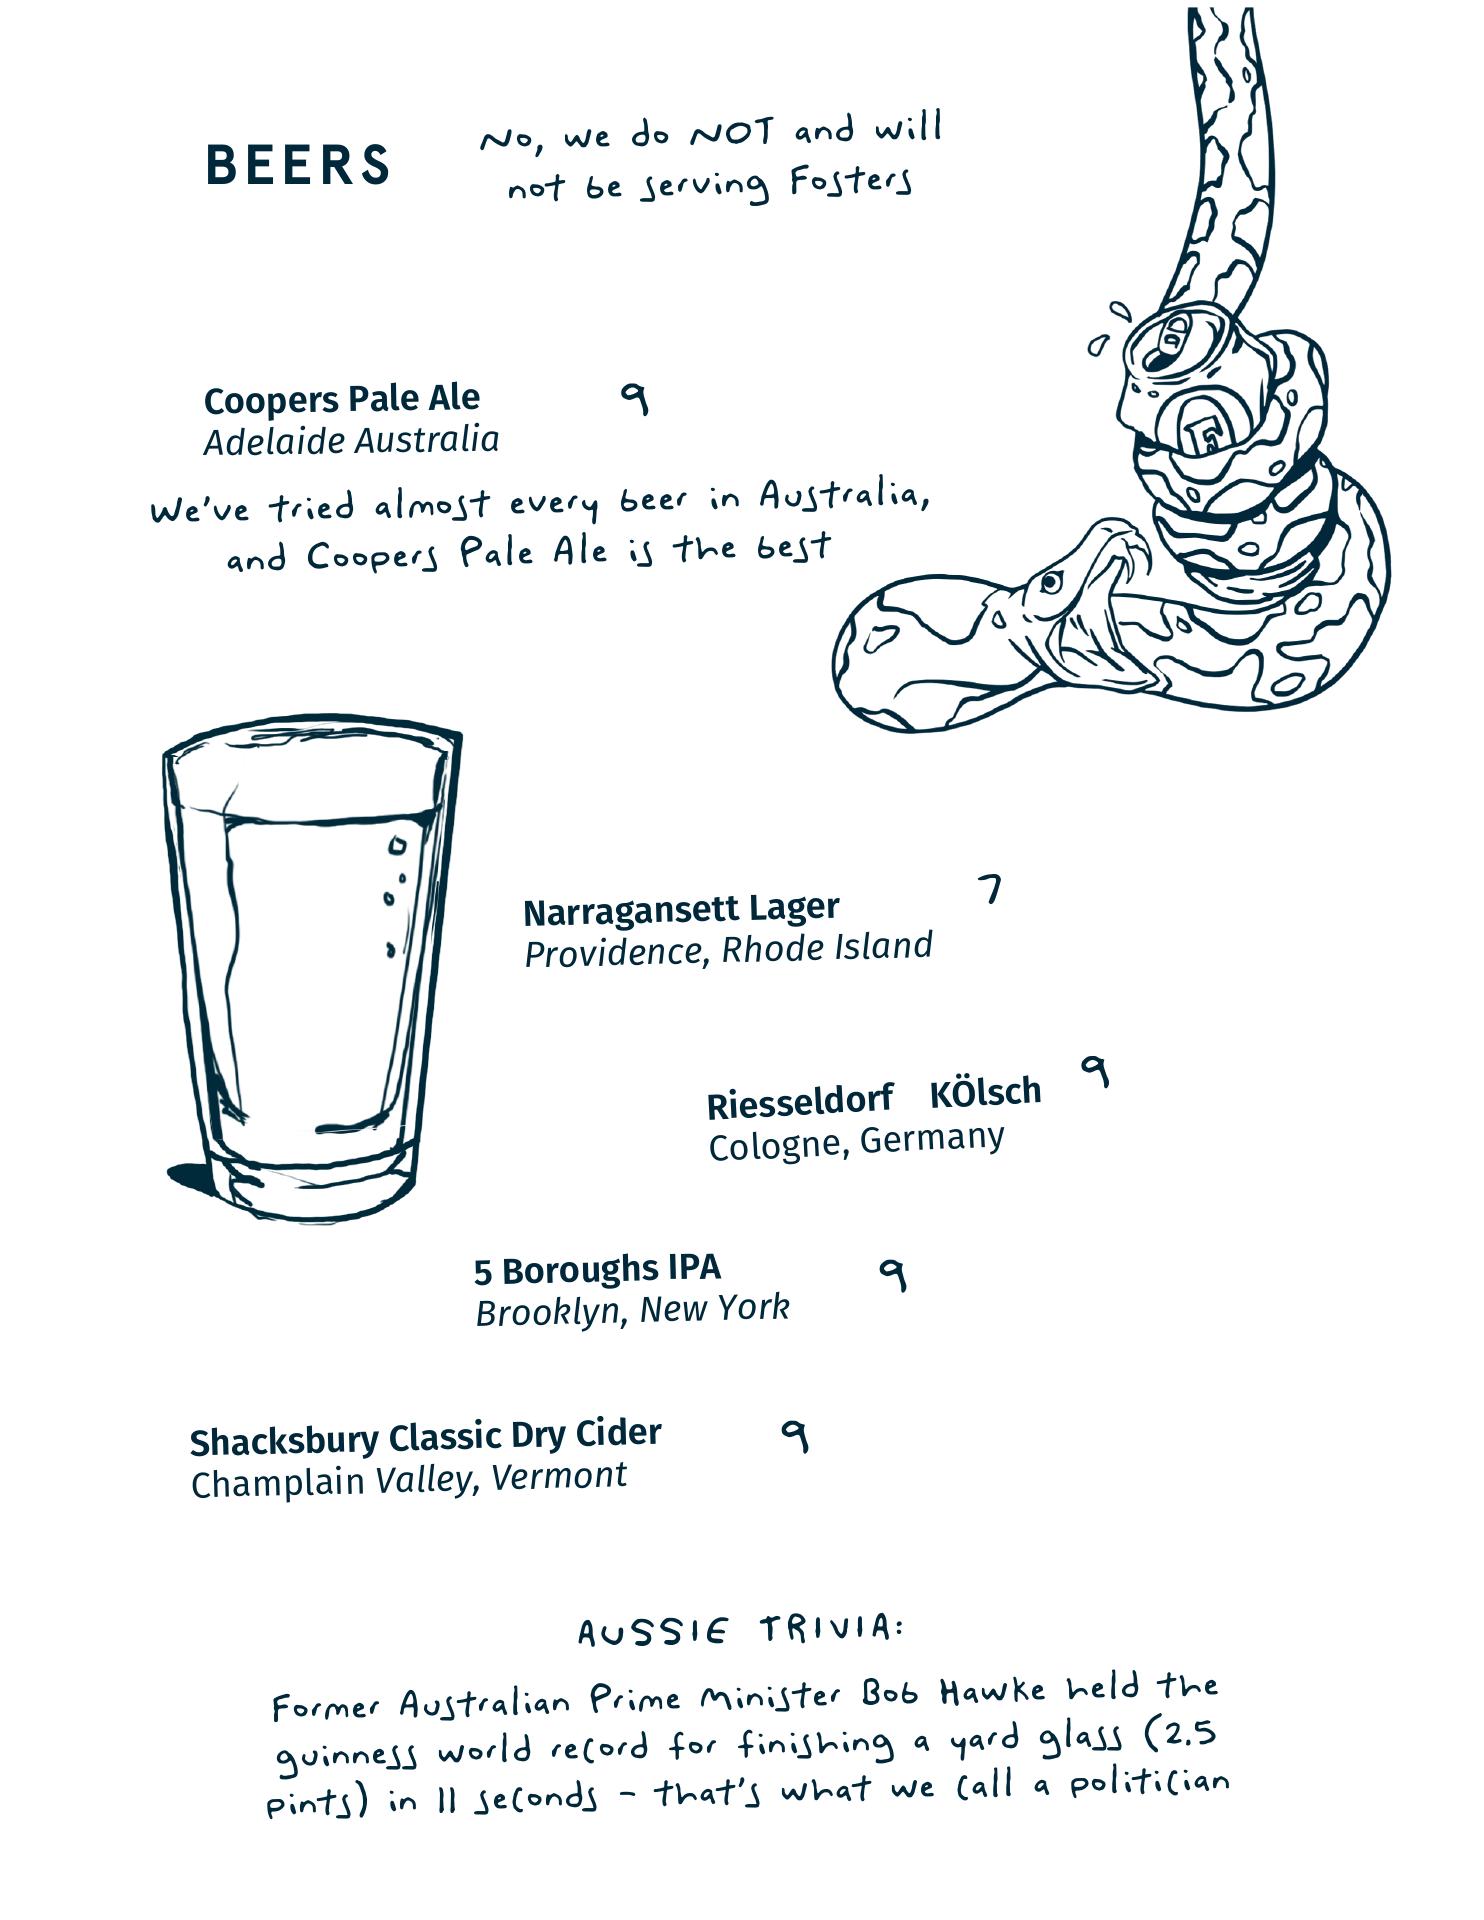 BEERS
No, we do NOT and will
not be serving Fosters
Coopers Pale Ale 9
Adelaide Australia
We've tried almost every beer in Australia,
and Coopers Pale Ale is the best
Narragansett Lager 7
Providence, Rhode Island
Riesseldorf KÖlsch 9
Cologne, Germany
5 Boroughs IPA 9
Brooklyn, New York
Shacksbury Classic Dry Cider 9
Champlain Valley, Vermont
AUSSIE TRIVIA:
Former Australian Prime Minister Bob Hawke held the
guinness world record for finishing a yard glass (2.5
pints) in 11 seconds - that's what we call a politician